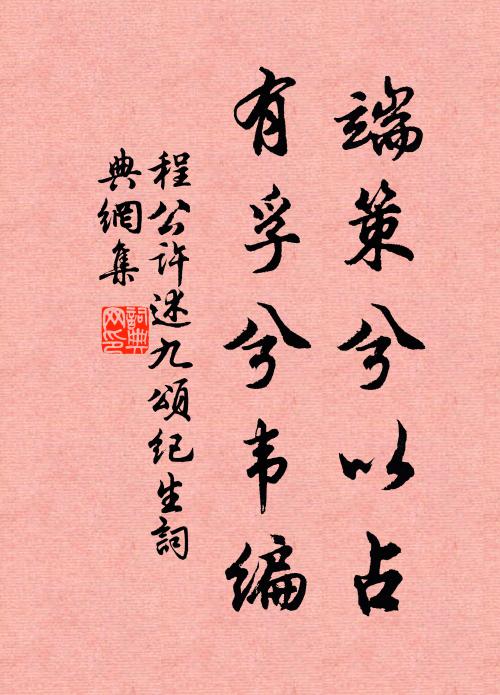 端策兮以占
有孚兮韦编
程公许述九頌纪生詞
典網集
詞典网印